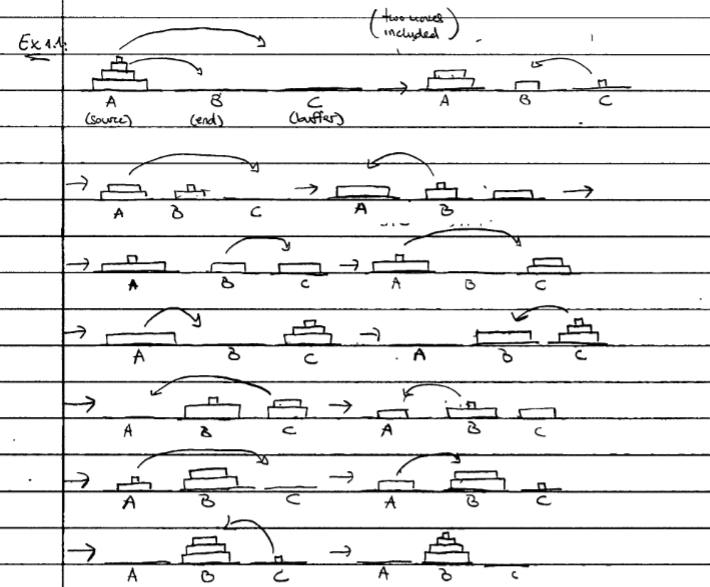 (two moves
included)
Ex 1.1.
A B C → A B C
(source) (end) (buffer)
→ A B C → A B →
→ A B C → A B C
→ A B C → A B C
→ A B C → A B C
→ A B C → A B C
→ A B C → A B C